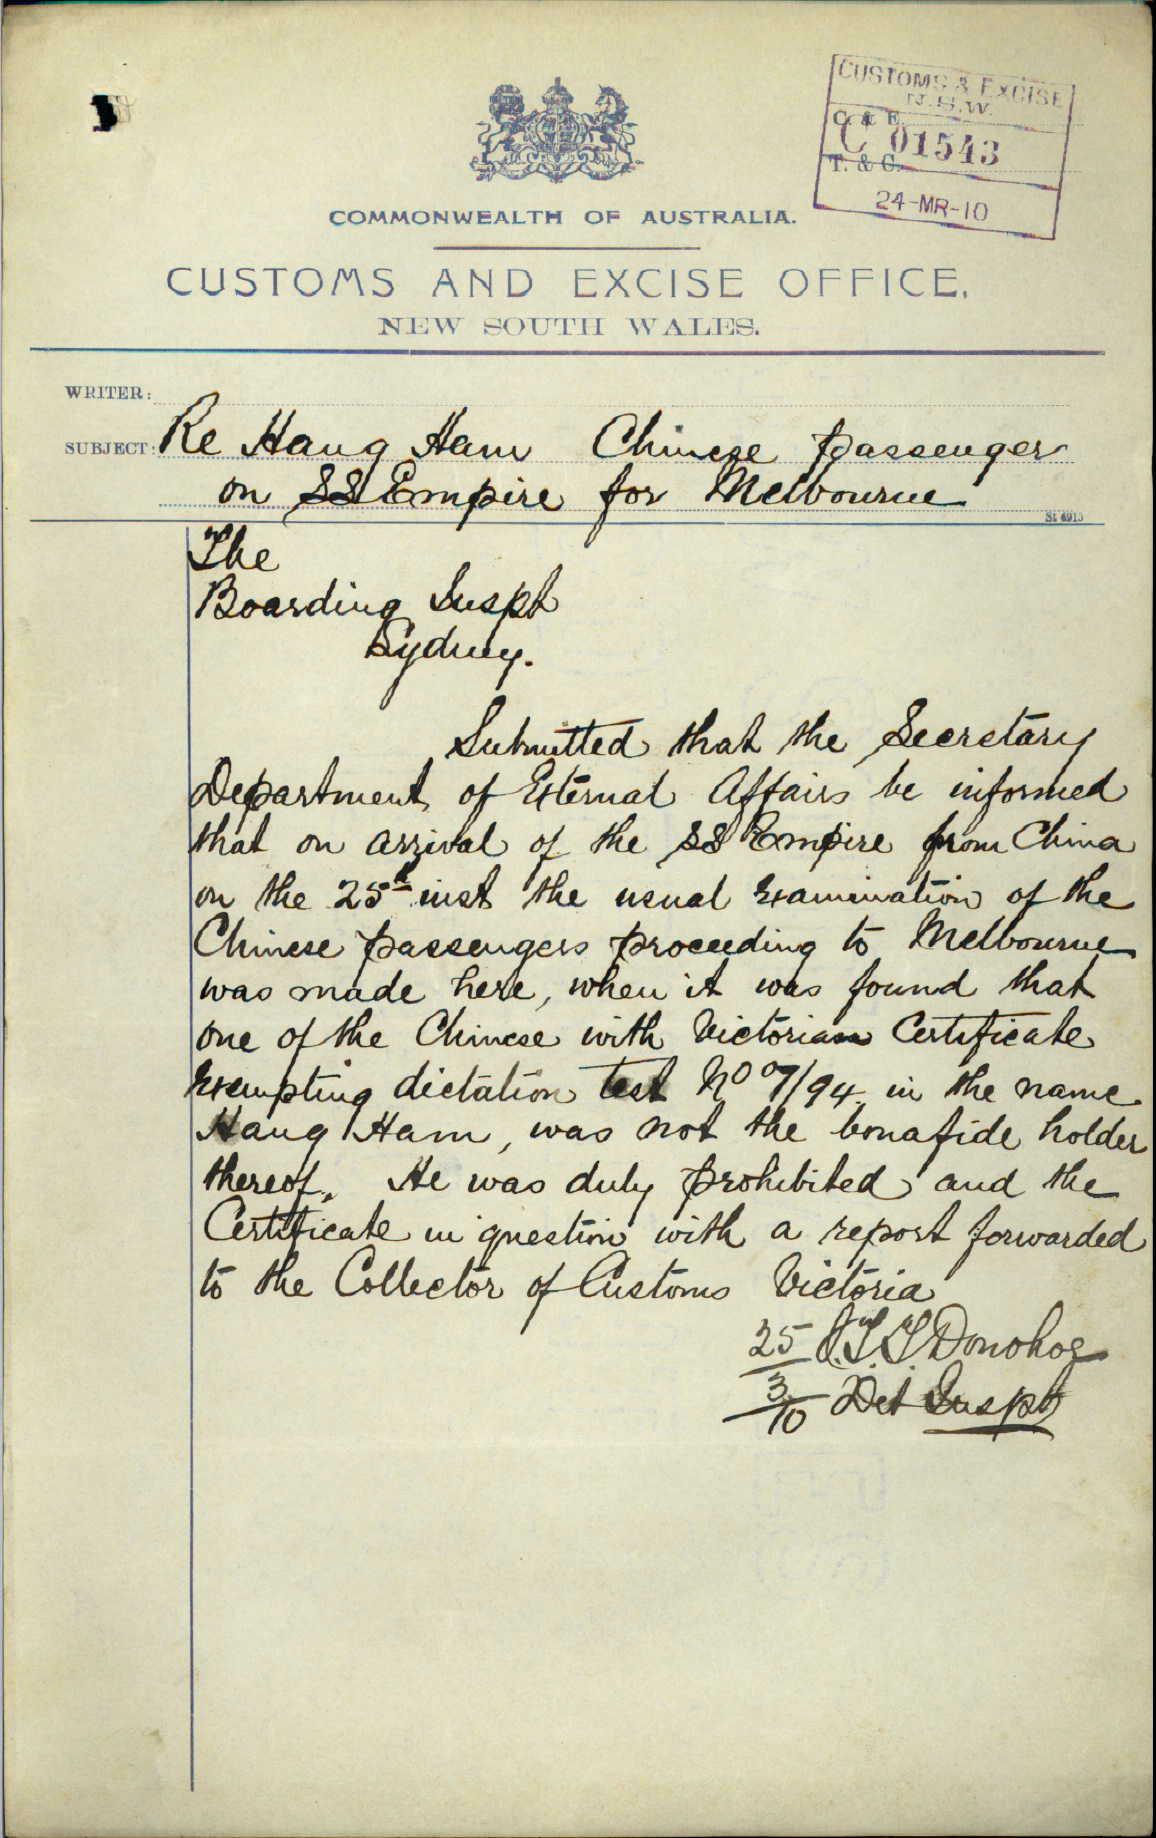 CUSTOMS & EXCISE
N.S.W.
C. & E.
C 01543
T. & C.
24-MR-10
COMMONWEALTH OF AUSTRALIA.
CUSTOMS AND EXCISE OFFICE,
NEW SOUTH WALES.
WRITER:
SUBJECT: Re Hang Ham Chinese passenger
on SS Empire for Melbourne
St 4913
The
Boarding Inspt
Sydney.
Submitted that the Secretary
Department of External Affairs be informed
that on arrival of the SS Empire from China
on the 25th inst the usual examination of the
Chinese passengers proceeding to Melbourne
was made here, when it was found that
one of the Chinese with Victorian Certificate
exempting dictation test No 07/94 in the name
Hang Ham, was not the bonafide holder
thereof. He was duly prohibited and the
Certificate in question with a report forwarded
to the Collector of Customs Victoria
25 J.T.T. Donohoe
3/10 Det Inspt